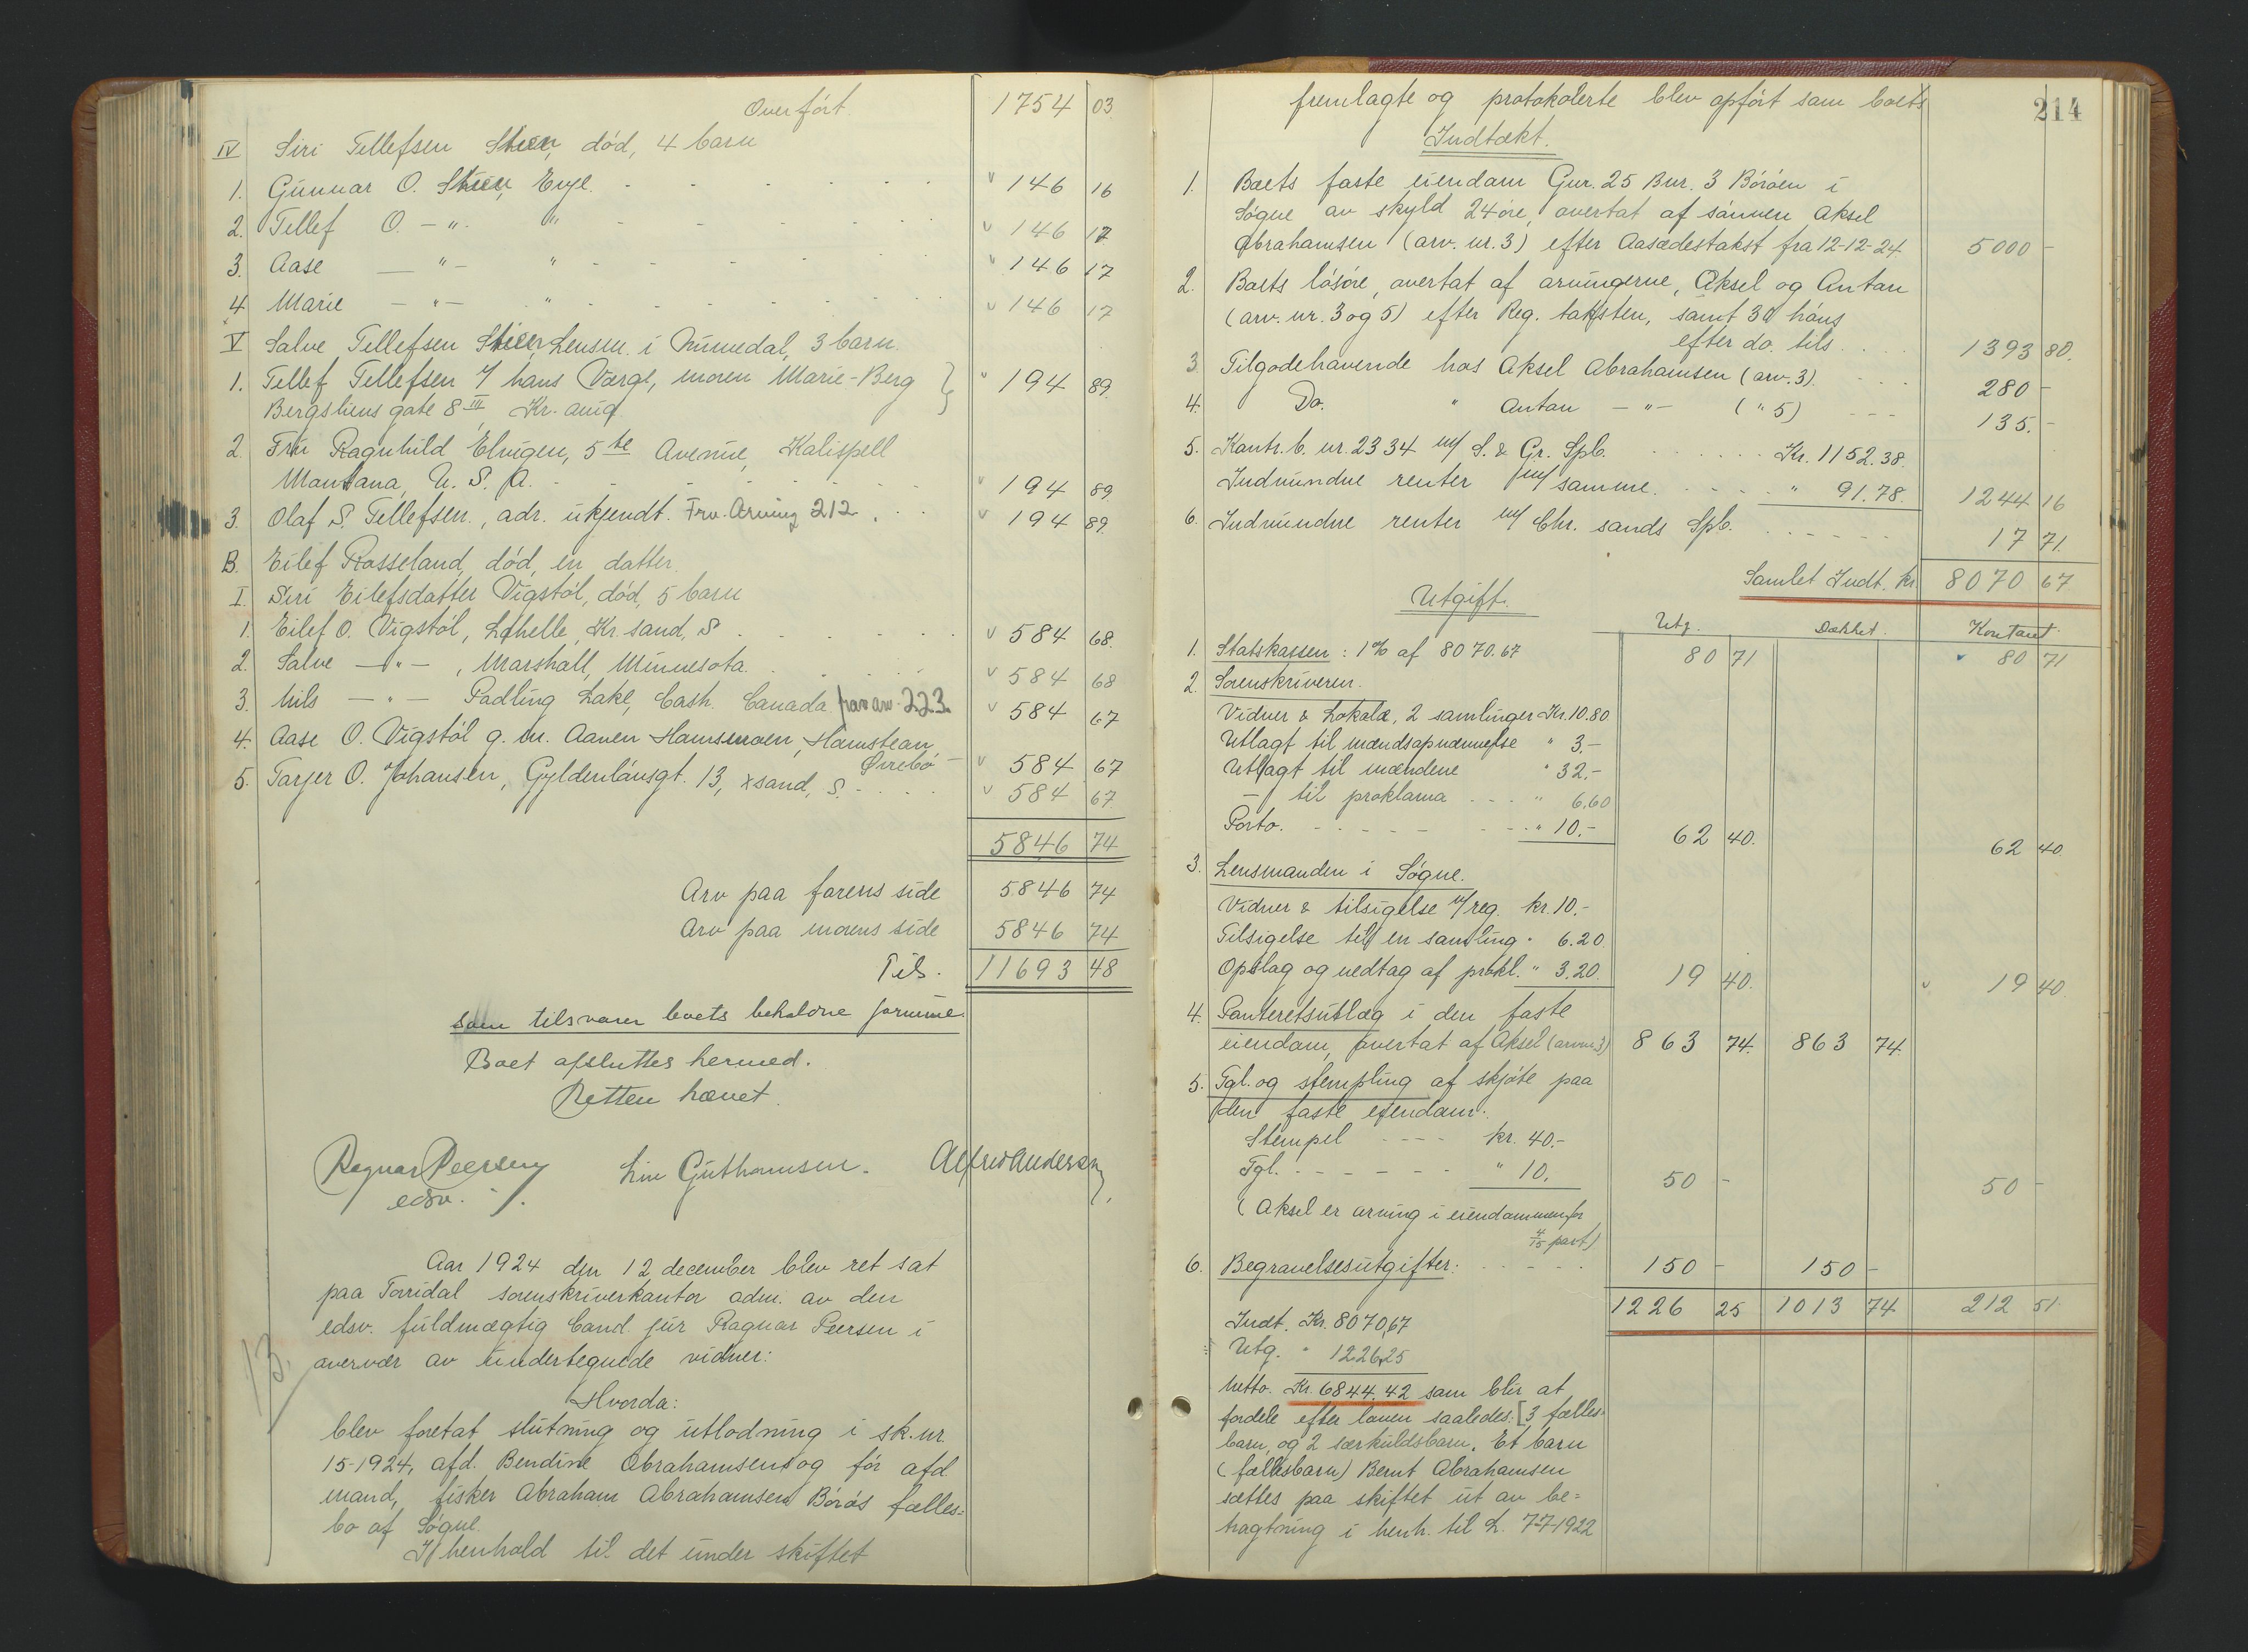 Overført. 1754 03
IV Siri Tellefsen Steen, död, 4 barn
1. Gunnar O. Steen, Evje. - - - - - - v 146 16
2. Tellef O. - " - " - - - - - v 146 17
3. Aase - " - " - - - - - v 146 17
4 Marie - " - " - - - - - v 146 17
V Salve Tellefsen Steen Lensm. i Numedal, 3 barn.
1. Tellef Tellefsen v/ hans Værge, moren Marie-Berg } " 194 89.
Bergsliens gate 8 III, Kr. ania.
2. Fru Ragnhild Elvigen, 5 te Avenue, Kalispell
Montana, U. S. A. - - - - - v 194 89
3. Olaf S. Tellefsen., adr. ukjendt. Frv. Arving 212. . . v 194 89.
B. Eilef Rosseland, död, en datter.
I. Siri Eilefsdatter Vigstöl, död, 5 barn
1. Eilef O. Vigstöl, Lahelle, Kr. sand, S. - - - - v 584 68.
2. Salve - " - , Marshall, Minnesota. . . . . v 584 68
3. Nils - " - Padling Lake, Cash. Canada frav arv. 223. v 584 67
4. Aase O. Vigstöl g. m. Aanen Homsmoen, Homstean,
Øvrebö - v 584 67
5. Tarjer O. Johansen, Gyldenlövsgt. 13, Xsand, S. - . . . v 584 67
5846 74
Arv paa farens side 5846 74
Arv paa morens side 5846 74
Tils. 11693 48
som tilsvarer boets beholdne formue.
Boet afsluttes hermed.
Retten hævet.
Ragnar Peersen Line Guthormsen. Alfred Andersen
edsv.
Aar 1924 den 12 december blev ret sat
paa Torridal sorenskriverkontor adm. av den
edsv. fuldmægtig Cand. jur Ragnar Peersen i
overvær av undertegnede vidner:
13.
Hvorda:
blev foretat slutning og utlodning i sk. nr.
15-1924, afd. Bendine Abrahamsens og för afd
mand, fisker Abraham Abrahamsen Börös fælles=
bo af Søgne.
I henhold til det under skiftet
214
fremlagte og protokolerte blev opfört som boets
Indtækt.
1. Boets faste eiendom Gnr. 25 Bnr. 3 Böröen i
Søgne av skyld 24 öre, overtat af sönnen Aksel
Abrahamsen (arv. nr. 3) efter Aasædestakst fra 12-12-24 5000 -
2. Boets lösöre, overtat af arvingerne, Aksel og Anton
(arv. nr. 3 og 5) efter Reg. taksten, samt 30 höns
efter do. tils . . . . 1393 80.
3. Tilgodehavende hos Aksel Abrahamsen (arv. 3). - - - 280 -
4. Do. " Anton - " - ( " 5) - - - 135. -
5. Kontr. b. nr. 2334 m/ S. & Gr. Spb. . . . . . . Kr. 1152.38.
Indvundne renter m/ samme. . - - . . " 91.78. 1244 16
6. Indvundne renter m/ Chr. sands Spb. . . . . . . 17 71.
Samlet Indt. kr. 8070 67
Utgift.
Utg. Dækket. Kontant
1. Statskassen: 1% af 8070.67 80 71 v 80 71
2. Sorenskriveren.
Vidner & Lokale, 2 samlinger Kr. 10.80
Utlagt til mændsopnævnelse " 3.-
Utlagt til mændene " 32.-
- til proklama . . - - " 6.60
Porto. - - - - - - - - " 10.- 62 40. 62 40.
3. Lensmanden i Søgne.
Vidner & tilsigelse v/ reg. kr. 10.-
Tilsigelse til en samling. " 6.20
Opslag og nedtag af prokl. " 3.20. 19 40. v 19 40
4. Panteretsutlæg i den faste
eiendom, overtat af Aksel (arv nr. 3) 863 74. 863 74.
5. Tgl. og stempling af skjöte paa
den faste eiendom.
Stempel - - - - kr. 40.-
Tgl. - - - - - - " 10. 50 - 50 -
(Aksel er arving i eiendommen for
4/15 part)
6. Begravelsesutgifter: . . - - - . 150 - 150 -
1226 25 1013 74 212 51
Indt. Kr. 8070,67
Utg. " 1226,25
Netto. Kr. 6844.42 som blir at
fordele efter loven saaledes: [3 fælles-
barn, og 2 særkuldsbarn. Et barn
(fællesbarn) Bernt Abrahamsen
sættes paa skiftet ut av be=
tragtning i henh. til L. 7-7-1922